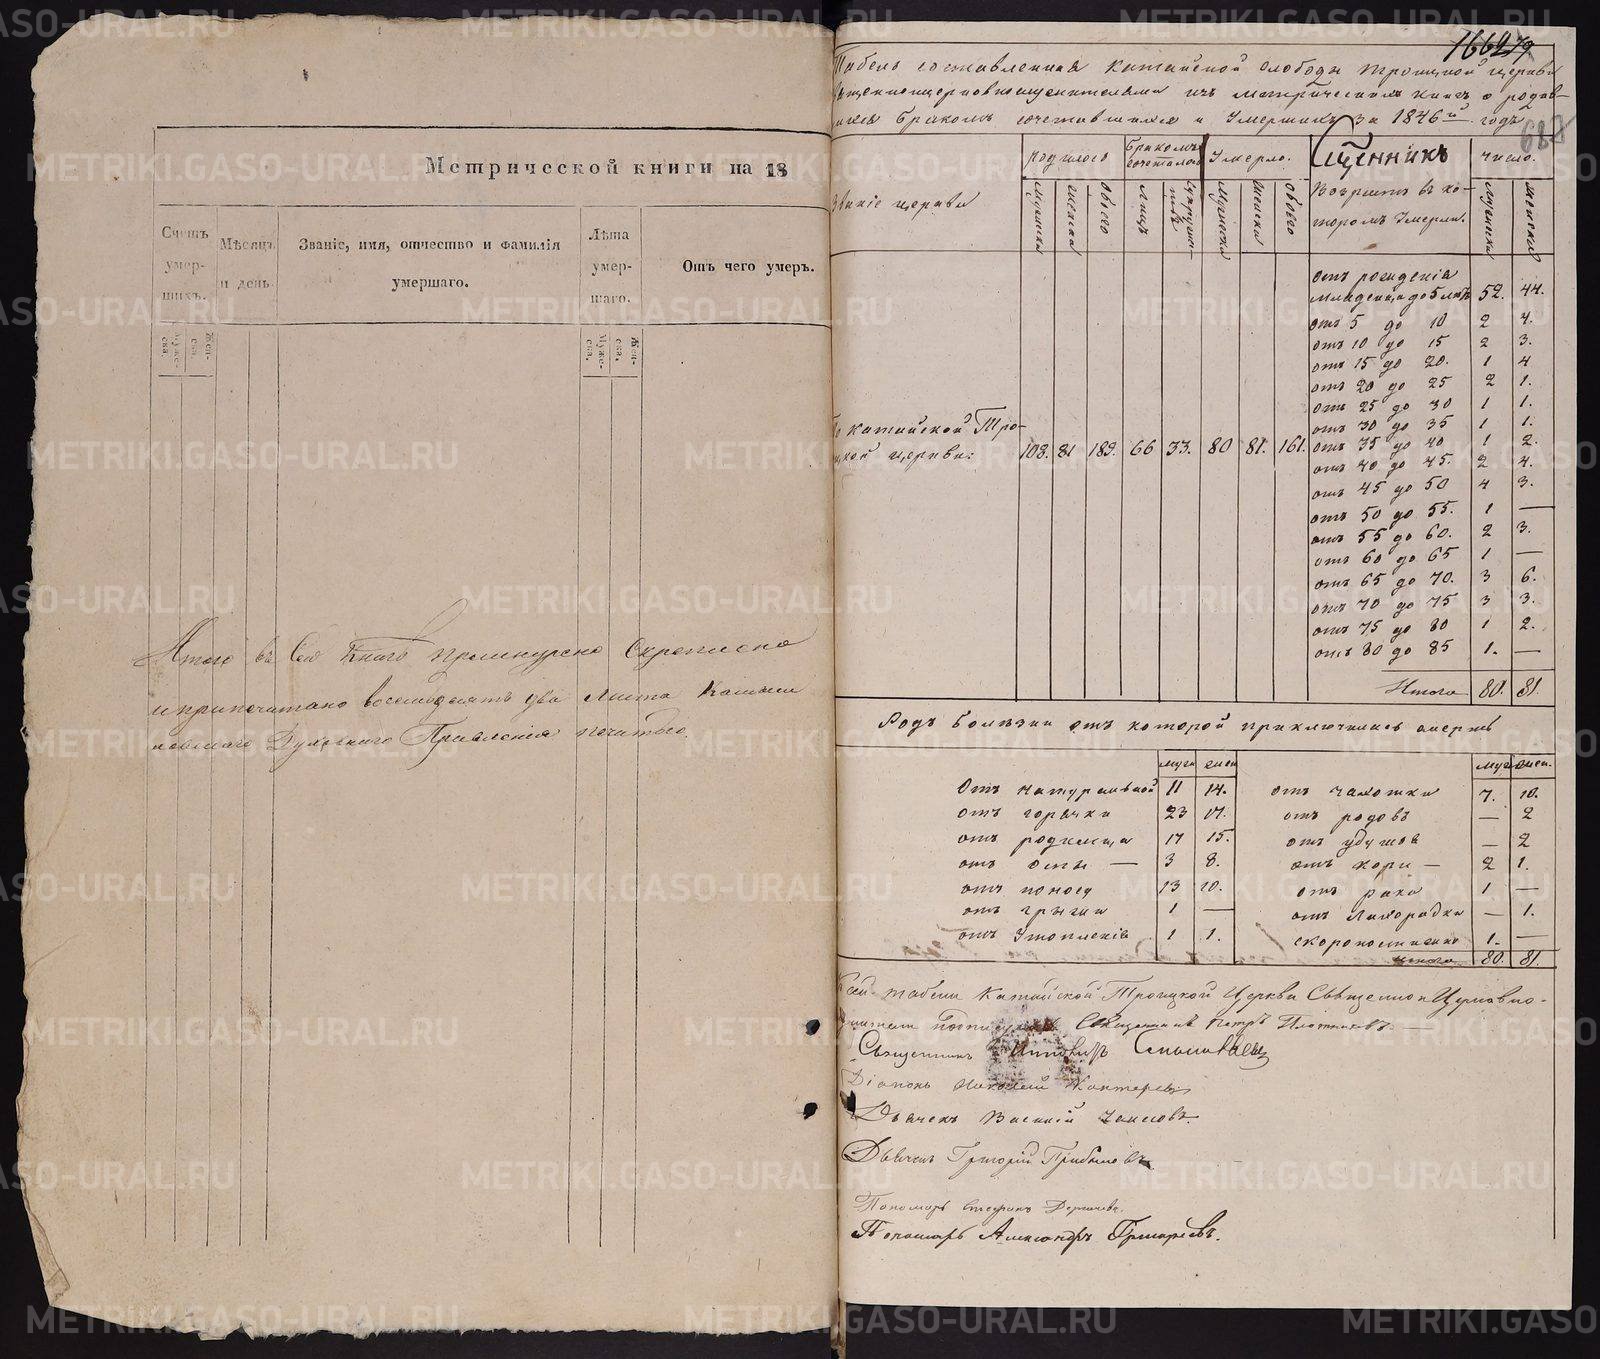 Метрической книги на 18
Счетъ умер-шихъ.
Мѣсяцъ и день
Званіе, имя, отчество и фамилія умершаго.
Лѣта умер-шаго.
Отъ чего умеръ.
Муже-ска.
Жен-ска.
Муже-ска.
Жен-ска.
Итого въ Сей Книгѣ прошнурено скреплено
и припечатано восемьдесятъ два листа
Духовнаго Правленія печатью
Табель составленная Катайской слободы Троицкой церкви
изъ метрическихъ книгъ о родив-
шихся бракомъ сочетавшихся и Умершихъ за 1846й годъ
687
Званіе церкви
родилось
бракомъ сочеталось
Умерло.
число.
Возрастъ въ ко-
торомъ Умерли.
мужески
женска
обоего
лицъ
супруже-ствъ
мужески
женски
обоего
мужески
женски
отъ рожденія
младенца до 5 летъ 52. 44.
отъ 5 до 10 2 4.
отъ 10 до 15 2 3.
отъ 15 до 20. 1 4
отъ 20 до 25 2 1.
отъ 25 до 30 1 1.
отъ 30 до 35 1 1.
отъ 35 до 40 1 2.
отъ 40 до 45. 2 4.
отъ 45 до 50 4 3.
отъ 50 до 55. 1 —
отъ 55 до 60. 2 3.
отъ 60 до 65 1 —
отъ 65 до 70. 3 6.
отъ 70 до 75 3 3.
отъ 75 до 80 1 2.
отъ 80 до 85 1. —
Итого 80. 81.
катайской Тро-
ицкой церкви: 108. 81 189. 66 33. 80 81. 161.
Родъ болѣзни отъ которой приключилась смерть
муж жен
муж жен.
Отъ натуральной 11 14.
отъ горячки 23 17.
отъ родимца 17 15.
отъ оспы — 3 8.
отъ поносу 13 10.
отъ грыжи 1 —
отъ Утопленія 1 1.
отъ чахотки 7. 10.
отъ родовъ — 2
отъ удушья — 2
отъ кори — 2 1.
отъ рака 1 —
отъ Лихорадки — 1.
скоропостижно 1. —
итого 80. 81.
Катайской Троицкой Церкви Священно и Церковно-
Священникъ Петръ Плотниковъ. —
Священникъ
Діаконъ Николай
Дьячекъ Василій
Дьячекъ Григорій Прибылевъ
Пономарь Стефанъ
Пономарь Александръ Григорьевъ.
METRIKI.GASO-URAL.RU